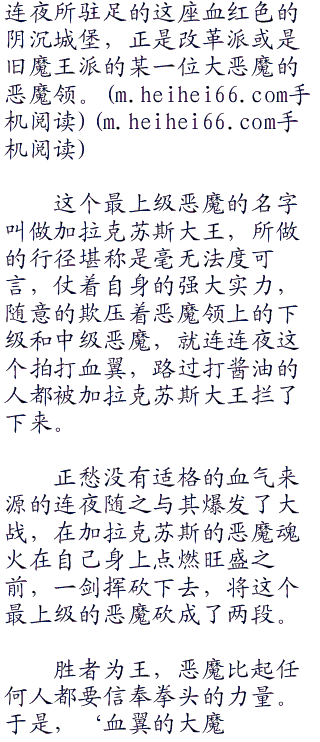 连夜所驻足的这座血红色的
阴沉城堡，正是改革派或是
旧魔王派的某一位大恶魔的
恶魔领。(m.heihei66.com手
机阅读)(m.heihei66.com手
机阅读)
这个最上级恶魔的名字
叫做加拉克苏斯大王，所做
的行径堪称是毫无法度可
言，仗着自身的强大实力，
随意的欺压着恶魔领上的下
级和中级恶魔，就连连夜这
个拍打血翼，路过打酱油的
人都被加拉克苏斯大王拦了
下来。
正愁没有适格的血气来
源的连夜随之与其爆发了大
战，在加拉克苏斯的恶魔魂
火在自己身上点燃旺盛之
前，一剑挥砍下去，将这个
最上级的恶魔砍成了两段。
胜者为王，恶魔比起任
何人都要信奉拳头的力量。
于是，‘血翼的大魔